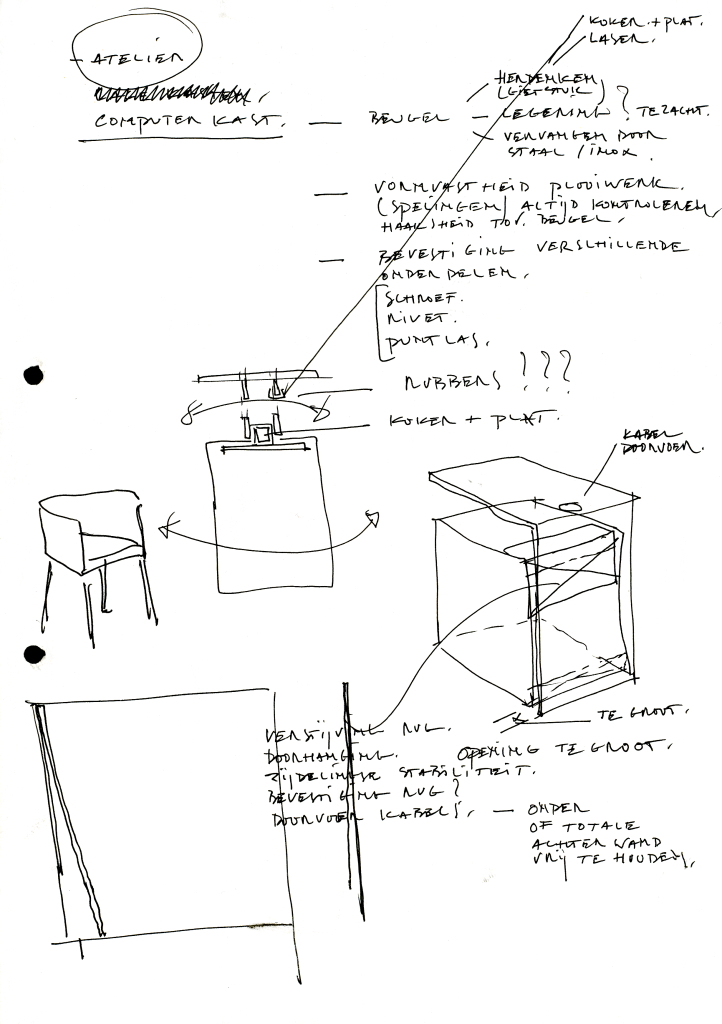 KOKER + PLAT.
LASER.
- ATELIER
COMPUTER KAST. — BEUGEL
HERDENKEN
(GIETSTUK)
- LEGERING ? TE ZACHT.
VERVANGEN DOOR
STAAL / INOX.
— VORMVASTHEID PLOOIWERK.
(SPELINGEN) ALTIJD KONTROLEREN,
HAAKSHEID TOV. BEUGEL.
— BEVESTIGING VERSCHILLENDE
ONDERDELEN.
SCHROEF.
RIVET.
PUNTLAS.
RUBBERS ???
KOKER + PLAT.
KABEL
DOORVOER.
TE GROOT.
VERSTIJVING RUG.
DOORHANGING. OPENING TE GROOT.
ZIJDELINGSE STABILITEIT.
BEVESTIGING RUG?
DOORVOER KABELS. — ONDER
OF TOTALE
ACHTERWAND
VRIJ TE HOUDEN.